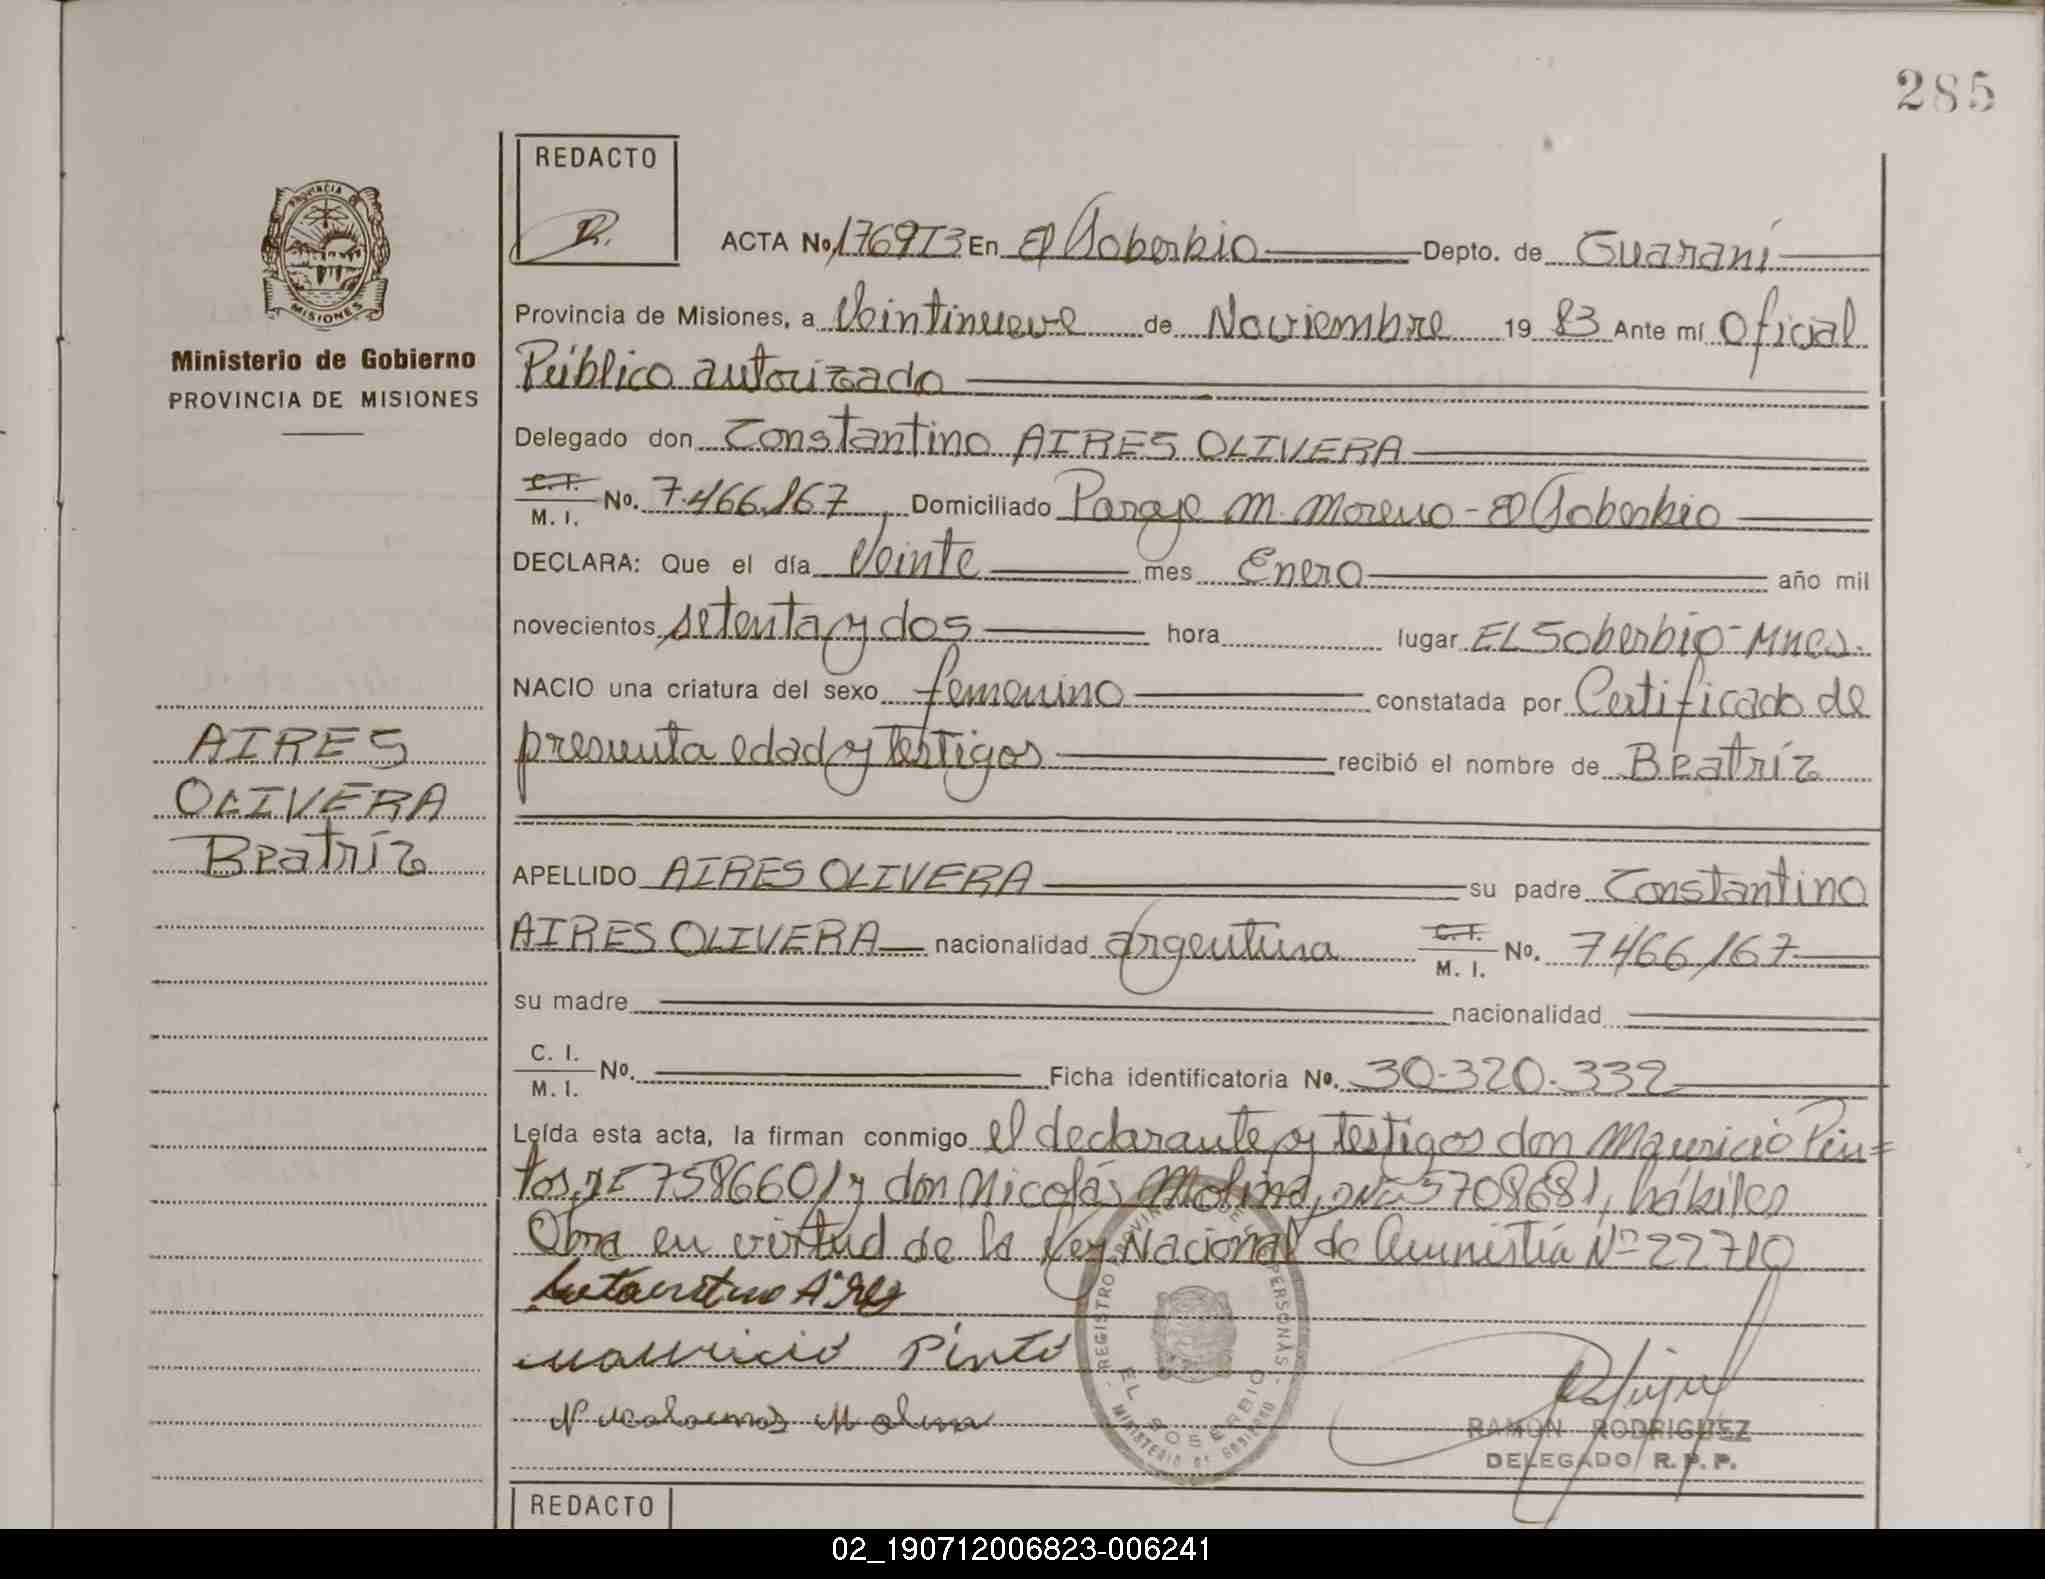 285
REDACTO
PROVINCIA
MISIONES
Ministerio de Gobierno
PROVINCIA DE MISIONES
ACTA No. 1769T3 En El Soberbio Depto. de Guaraní
Provincia de Misiones, a Veintinueve de Noviembre 19 83 Ante mí Oficial
Público autorizado
Delegado don Constantino AIRES OLIVERA
C. I. M. I. No. 7.466.167, Domiciliado Paraje M. Moreno - El Soberbio
DECLARA: Que el día Veinte mes Enero año mil
novecientos setenta y dos hora lugar EL Soberbio - Mnes.
NACIO una criatura del sexo femenino constatada por Certificado de
presunta edad y testigos recibió el nombre de Beatríz
AIRES
OLIVERA
Beatríz
APELLIDO AIRES OLIVERA su padre Constantino
AIRES OLIVERA nacionalidad argentina C. I. M. I. No. 7466167
su madre nacionalidad
C. I. M. I. No. Ficha identificatoria No. 30.320.332
Leída esta acta, la firman conmigo el declarante y testigos don Mauricio Pin=
tos, 7586601 y don Nicolás Molina, 5708681, hábiles
Obra en virtud de la Ley Nacional de Amnistía Nº 22710
Aires
Mauricio Pinto
Molina
REGISTRO PROVINCIAL DE LAS PERSONAS
EL SOBERBIO
MINISTERIO DE GOBIERNO
RAMON RODRIGUEZ
DELEGADO R. P. P.
REDACTO
02_190712006823-006241